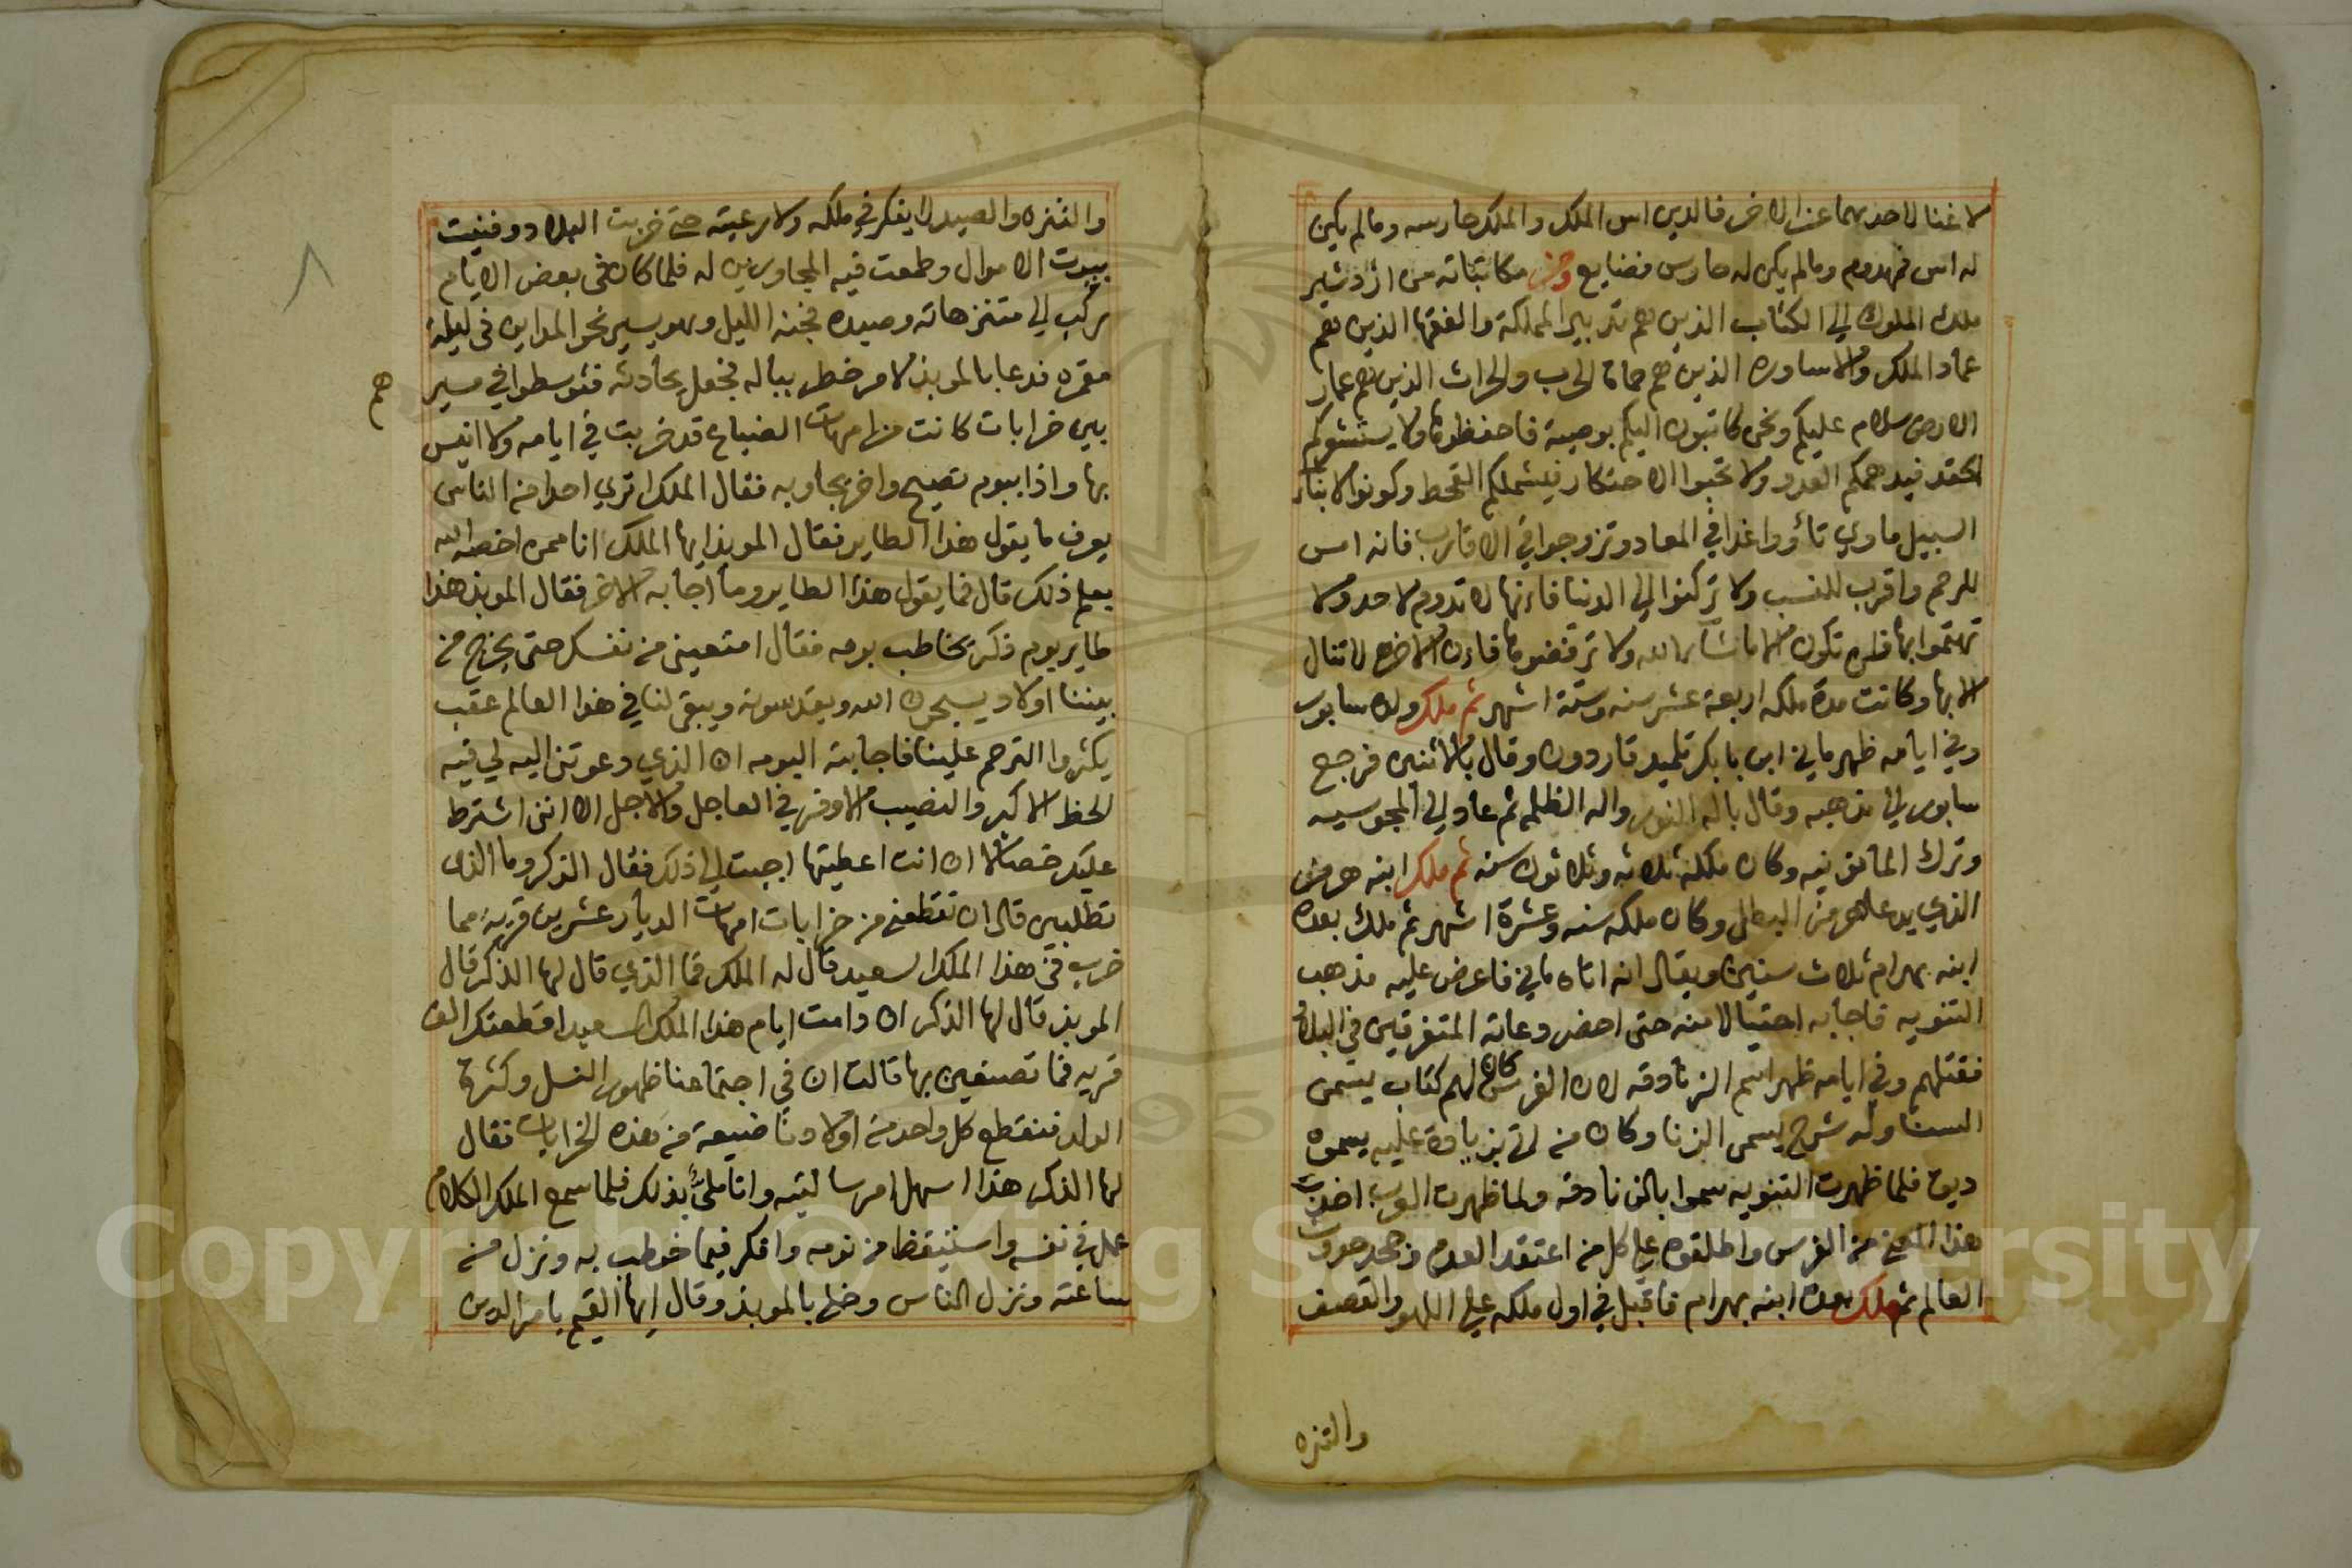 لا غنا لاحدهما عن الاخر فالدين اس الملك والملك حارسه ومالم يكن
له اس فمهدوم ومالم يكن له حارس فضايع ومن مكاتباته من ازدشير
ملك الملوك الي الكتاب الذين هم تدبير المملكة والفقها الذين هم
عماد الملك والاساوره الذين هم حماة الحرب والحراث الذين هم عمار
الارض سلام عليكم ونحن كاتبون اليكم بوصية فاحفظوها ولا يستشوكم
الحقد فيدهمكم العدو ولا تحبوا الاحتكار فيشملكم القحط وكونوا لابناء
السبيل ماوي تأووا غدا في المعاد وتزوجوا في الاقارب فانه امس
للرحم واقرب للنسب ولا تركنوا الي الدنيا فانها لا تدوم لاحد ولا
تهتموا بها فلن تكون الا ماشا الله ولا ترفضوها فان الاخره لا تنال
الا بها وكانت مدة ملكه اربعة عشر سنه وستة اشهر ثم ملك ولده سابور
وفي ايامه ظهر ماني ابن بابكر تلميد قاردون وقال بالاثنين فرجع
سابور الي مذهبه وقال باله النور واله الظلمه ثم عاد الي المجوسيه
وترك المانونيه وكان ملكه ثلاثه وثلاثون سنه ثم ملك ابنه هرمز
الذي يدعا هرمز البطل وكان ملكه سنه وعشرة اشهر ثم ملك بعده
ابنه بهرام ثلاث سنين ويقال انه اتاه ماني فاعرض عليه مذهب
التنويه فاجابه احتيالا منه حتى احضر دعاته المتفرقين في البلاد
فقتلهم وفي ايامه ظهر اسم الزنادقه لان الفرس كان لهم كتاب يسمى
السنا وله شرح يسمى الزنا وكان من اتى بزيادة عليه يسموه
ديق فلما ظهرت التنويه سموا بالزنادقه ولما ظهرت العرب اخذت
هذا المعنى من الفرس واطلقوه علي كل من اعتقد العدم وجحد حدوث
العالم ثم ملك بعده ابنه بهرام فاقبل في اول ملكه علي اللهو والقصف
والتنزه
والتنزه والصيد لا يفكر في ملكه ولا رعيته حتى خربت البلاد وفنيت
بيوت الاموال وطمعت فيه المجاورين له فلما كان في بعض الايام
ركب الي متنزهاته وصيده فجنه الليل وهو يسير نحو المداين في ليلة
مقمره فدعا بالموبذ لامر خطر بباله فجعل يحادثه فتوسطوا في مسير
هم
بين خرابات كانت من امهات الضياع قد خربت في ايامه ولا انيس
بها واذا ببوم تصيح واخر يجاوبه فقال الملك اترى احدا من الناس
يعرف ما يقول هذا الطاير فقال الموبذ ايها الملك انا ممن اخصه الله
بعلم ذلك قال فما يقول هذا الطاير وما اجابه الاخر فقال الموبذ هذا
طاير بوم ذكر يخاطب بومه فقال امتعيني من نفسك حتى يخرج من
بيننا اولاد يسبحون الله ويقدسونه ويبقى لنا في هذا العالم عقب
يكثروا الترحم علينا فاجابته البومه ان الذي دعوتني اليه لي فيه
الحظ الاكبر والنصيب الاوفر في العاجل والاجل الا انني اشترط
عليك خصالا ان انت اعطيتها اجبت الي ذلك فقال الذكر وما الذي
تطلبين قال ان تقطعني من خرابات امهات الديار عشرين قرية مما
خرب في هذا الملك السعيد قال له الملك فما الذي قال لها الذكر قال
الموبذ قال لها الذكر ان دامت ايام هذا الملك السعيد اقطعتك الف
قريه فما تصنعين بها قالت ان في اجتماعنا ظهور النسل وكثرة
الولد فنقطع كل واحد من اولادنا ضيعة من هذه الخرابات فقال
لها الذكر هذا اسهل امر سالتيه وانا ملئ بذلك فلما سمع الملك الكلام
عمل في نفسه واستيقظ من نومه وافكر فيما خوطب به ونزل من
ساعته ونزل الناس وخلى بالموبذ وقال ايها القيم بامر الدين
٨